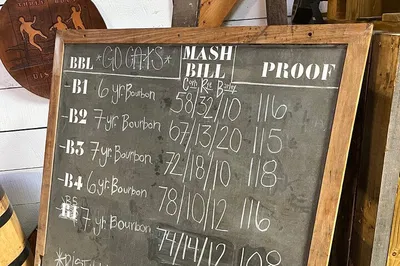 BBL *GO CATS* MASH BILL PROOF
Corn Rye Barley
-B1 6 yr. Bourbon 58/32/10 116
-B2 7 yr. Bourbon 67/13/20 115
-B3 7 yr. Bourbon 72/18/10 118
-B4 6 yr. Bourbon 78/10/12 116
B5 7 yr Bourbon 74/14/12 108